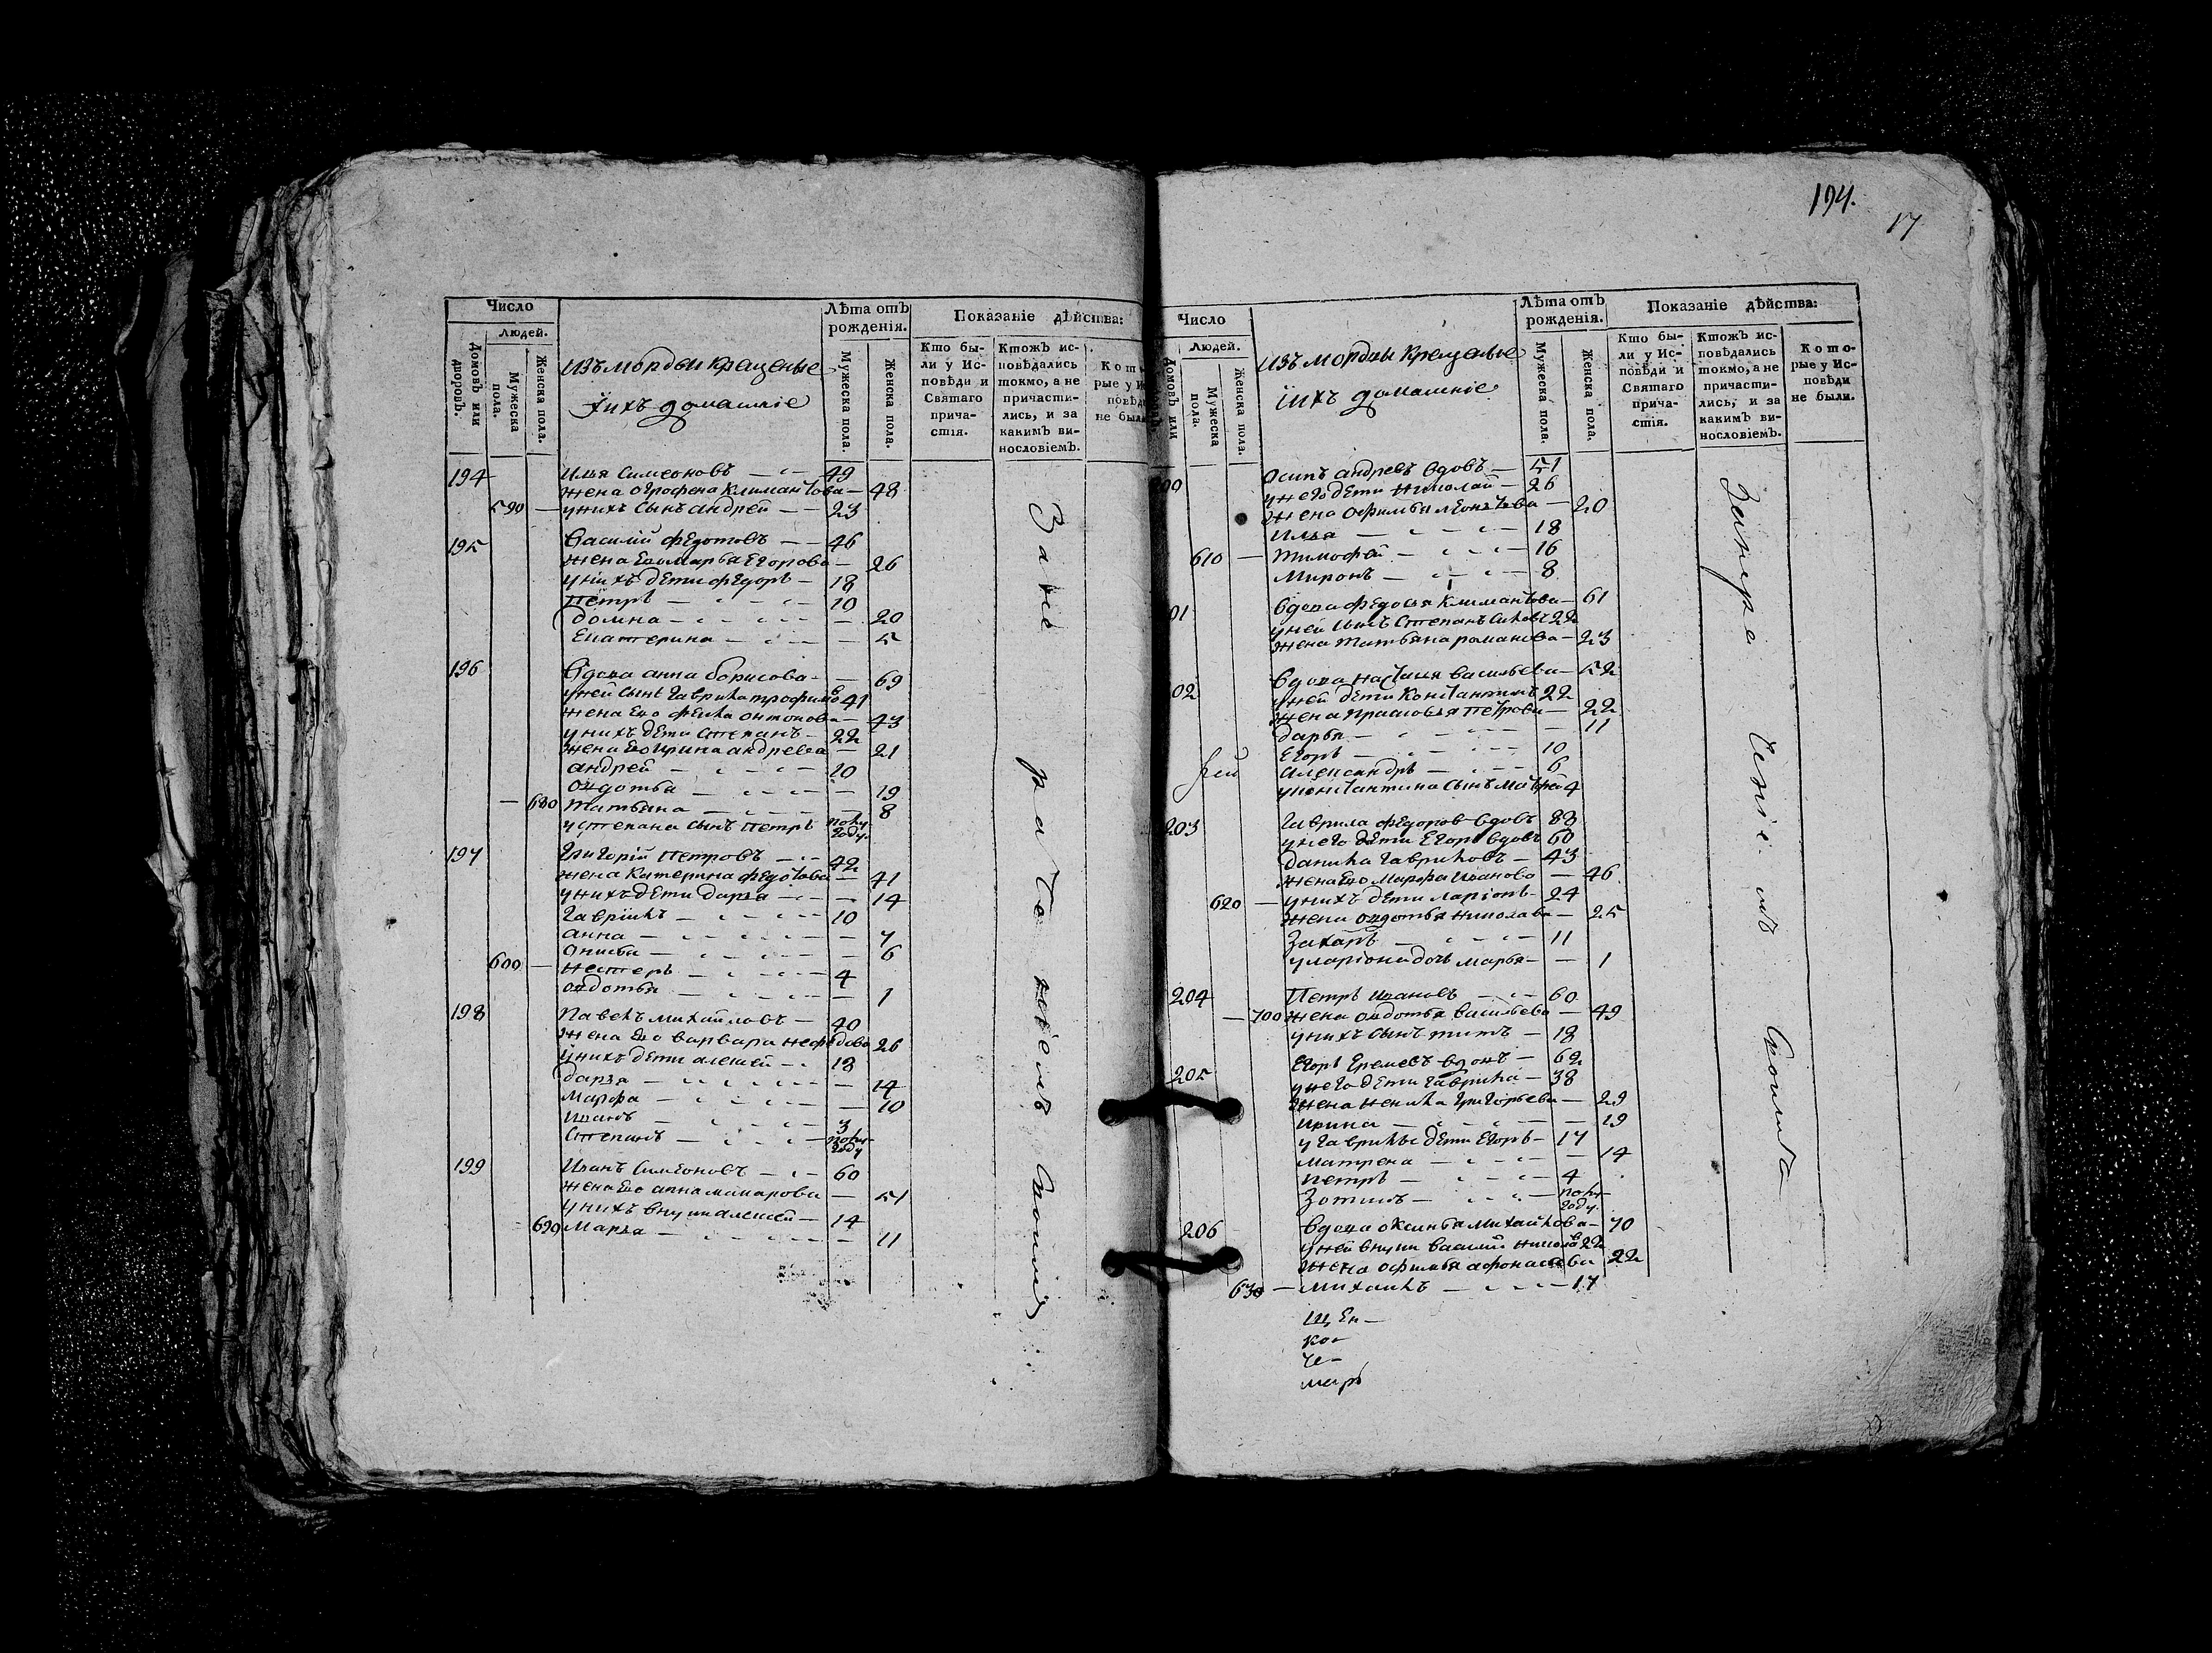 194.
17
Число
Людей.
Домовъ или дворовъ.
Мужеска пола.
Женска пола.
изъ мордвы крещеные
ї ихъ домашніе
Лѣта отъ рожденія.
Мужеска пола.
Женска пола.
Показаніе дѣйства:
Кто бы-
ли у Ис-
повѣди и
Святаго
прича-
стія.
Ктожъ ис-
повѣдались
токмо, а не
причасти-
лись, и за
какимъ ви-
нословіемъ.
194 Илья Симеоновъ — 49
жена огрофена Климантова — 48
590 — у нихъ сынъ андрей — 23
195 Василий федотовъ — 46
жена ево марья Егорова — 26
у нихъ дети федоръ — 18
Петръ — 10
домна — 20
Екатерина — 5
196 Вдова анна борисова — 69
у ней сынъ гаврила трофимов 41
жена ево фекла онтонова — 43
у нихъ дети степанъ — 22
жена ево ирина андреева — 21
андрей — 10
овдотья — 19
— 680 татьяна — 8
у степана сынъ петръ полу году.
197 Григорій Петровъ — 42
жена катерина федотова — 41
у нихъ дети дарья — 14
гаврїилъ — 10
анна — 7
6
600 — нестеръ — 4
овдотья — 1
198 Павелъ михайловъ — 40
жена ево варвара нефедова 26
у нихъ дети алексей — 18
дарья — 14
марфа — 10
иванъ — 3
степанъ — полу году
199 Иванъ Симеоновъ — 60
жена ево анна макарова — 51
у нихъ внуки алексей — 14
690 марья — 11
Число
Людей.
Домовъ или
Мужеска пола.
Женска пола.
изъ мордвы крещеные
ї ихъ домашніе
Лѣта отъ рожденія.
Мужеска пола.
Женска пола.
Показаніе дѣйства:
Кто бы-
ли у Ис-
повѣди и
Святаго
прича-
стія.
Ктожъ ис-
повѣдались
токмо, а не
причасти-
лись, и за
какимъ ви-
нословіемъ.
Кото-
рые у Ис-
повѣди
не были.
Осипъ андреевъ вдовъ — 51
у него дети николай — 26
жена офимья — 20
илья — 18
610 — тимофей — 16
миронъ — 8
01 Вдова федосья климантова — 61
у ней сынъ степанъ 22
жена татьяна романова — 23
02 Вдова настасья васильева — 52
у ней дети константинъ 22
жена прасковья петрова — 22
дарья — 11
Егоръ — 10
александръ — 6
у константина сынъ матвей 4
203 Гаврила федоров вдовъ 83
у него дети Егоръ вдовъ 60
данила гавриловъ — 43
жена ево марфа иванова — 46
620 — у нихъ дети ларіонъ — 24
жена овдотья николава — 25
захаръ — 11
у ларіона дочь марья — 1
204 Петръ ивановъ — 60
— 700 жена овдотья васильева — 49
у нихъ сынъ титъ — 18
205 Егоръ Еремеевъ вдовъ — 62
у него дети гаврила — 38
жена ненила григорьева — 29
ирина — 19
у гаврилы дети Егоръ — 17
матрена — 14
петръ — 4
зотикъ — полу году.
206 вдова оксинья михайлова — 70
у ней внуки василий 22
жена офимья афонасева 22
630 — михаилъ — 17
щен-
ко-
че-